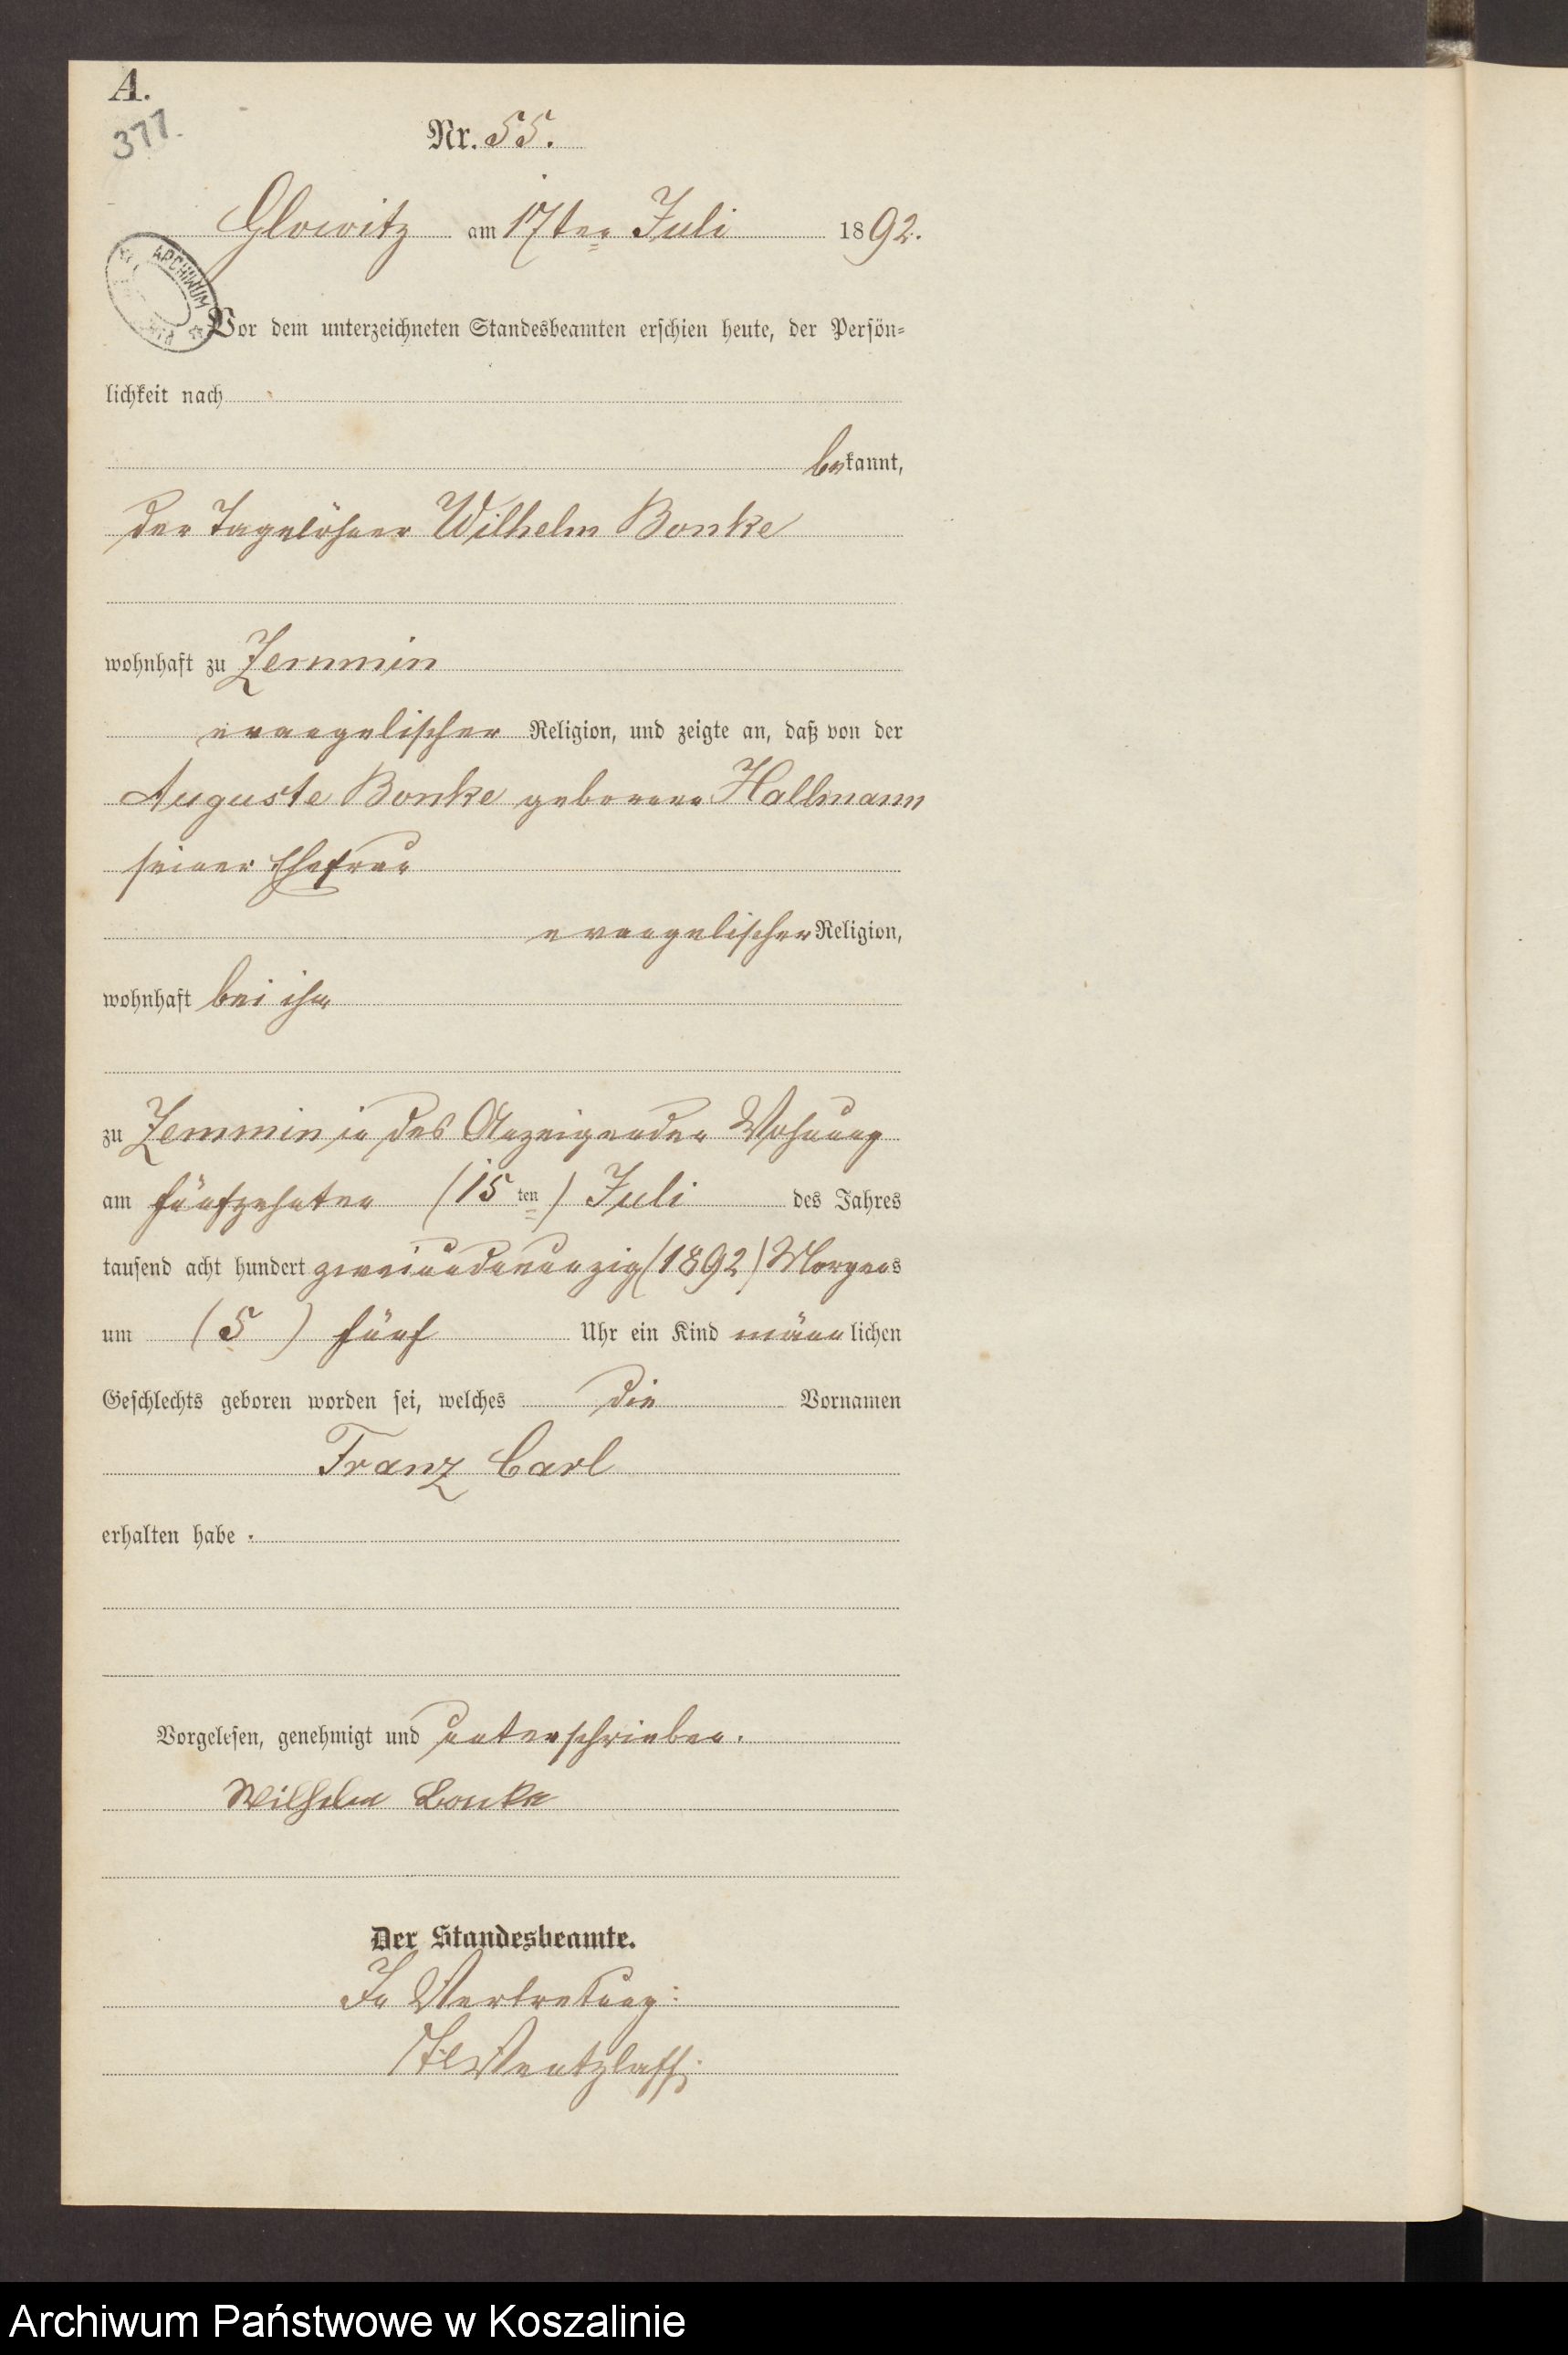 A.
377.
Nr. 55.
Glowitz am 17ten Juli 1892.
ARCHIWUM
Vor dem unterzeichneten Standesbeamten erschien heute, der Persön-
lichkeit nach
bekannt,
der Tagelöhner Wilhelm Bonke
wohnhaft zu Zemmin
evangelischer Religion, und zeigte an, daß von der
Auguste Bonke geborene Hallmann
seiner Ehefrau
evangelischer Religion,
wohnhaft bei ihm
zu Zemmin in des Anzeigenden Wohnung
am fünfzehnten (15 ten) Juli des Jahres
tausend acht hundert zweiundneunzig (1892) Morgens
um (5) fünf Uhr ein Kind männlichen
Geschlechts geboren worden sei, welches die Vornamen
Franz Carl
erhalten habe.
Vorgelesen, genehmigt und unterschrieben.
Wilhelm Bonke
Der Standesbeamte.
In Vertretung:
Wentzlaff.
Archiwum Państwowe w Koszalinie